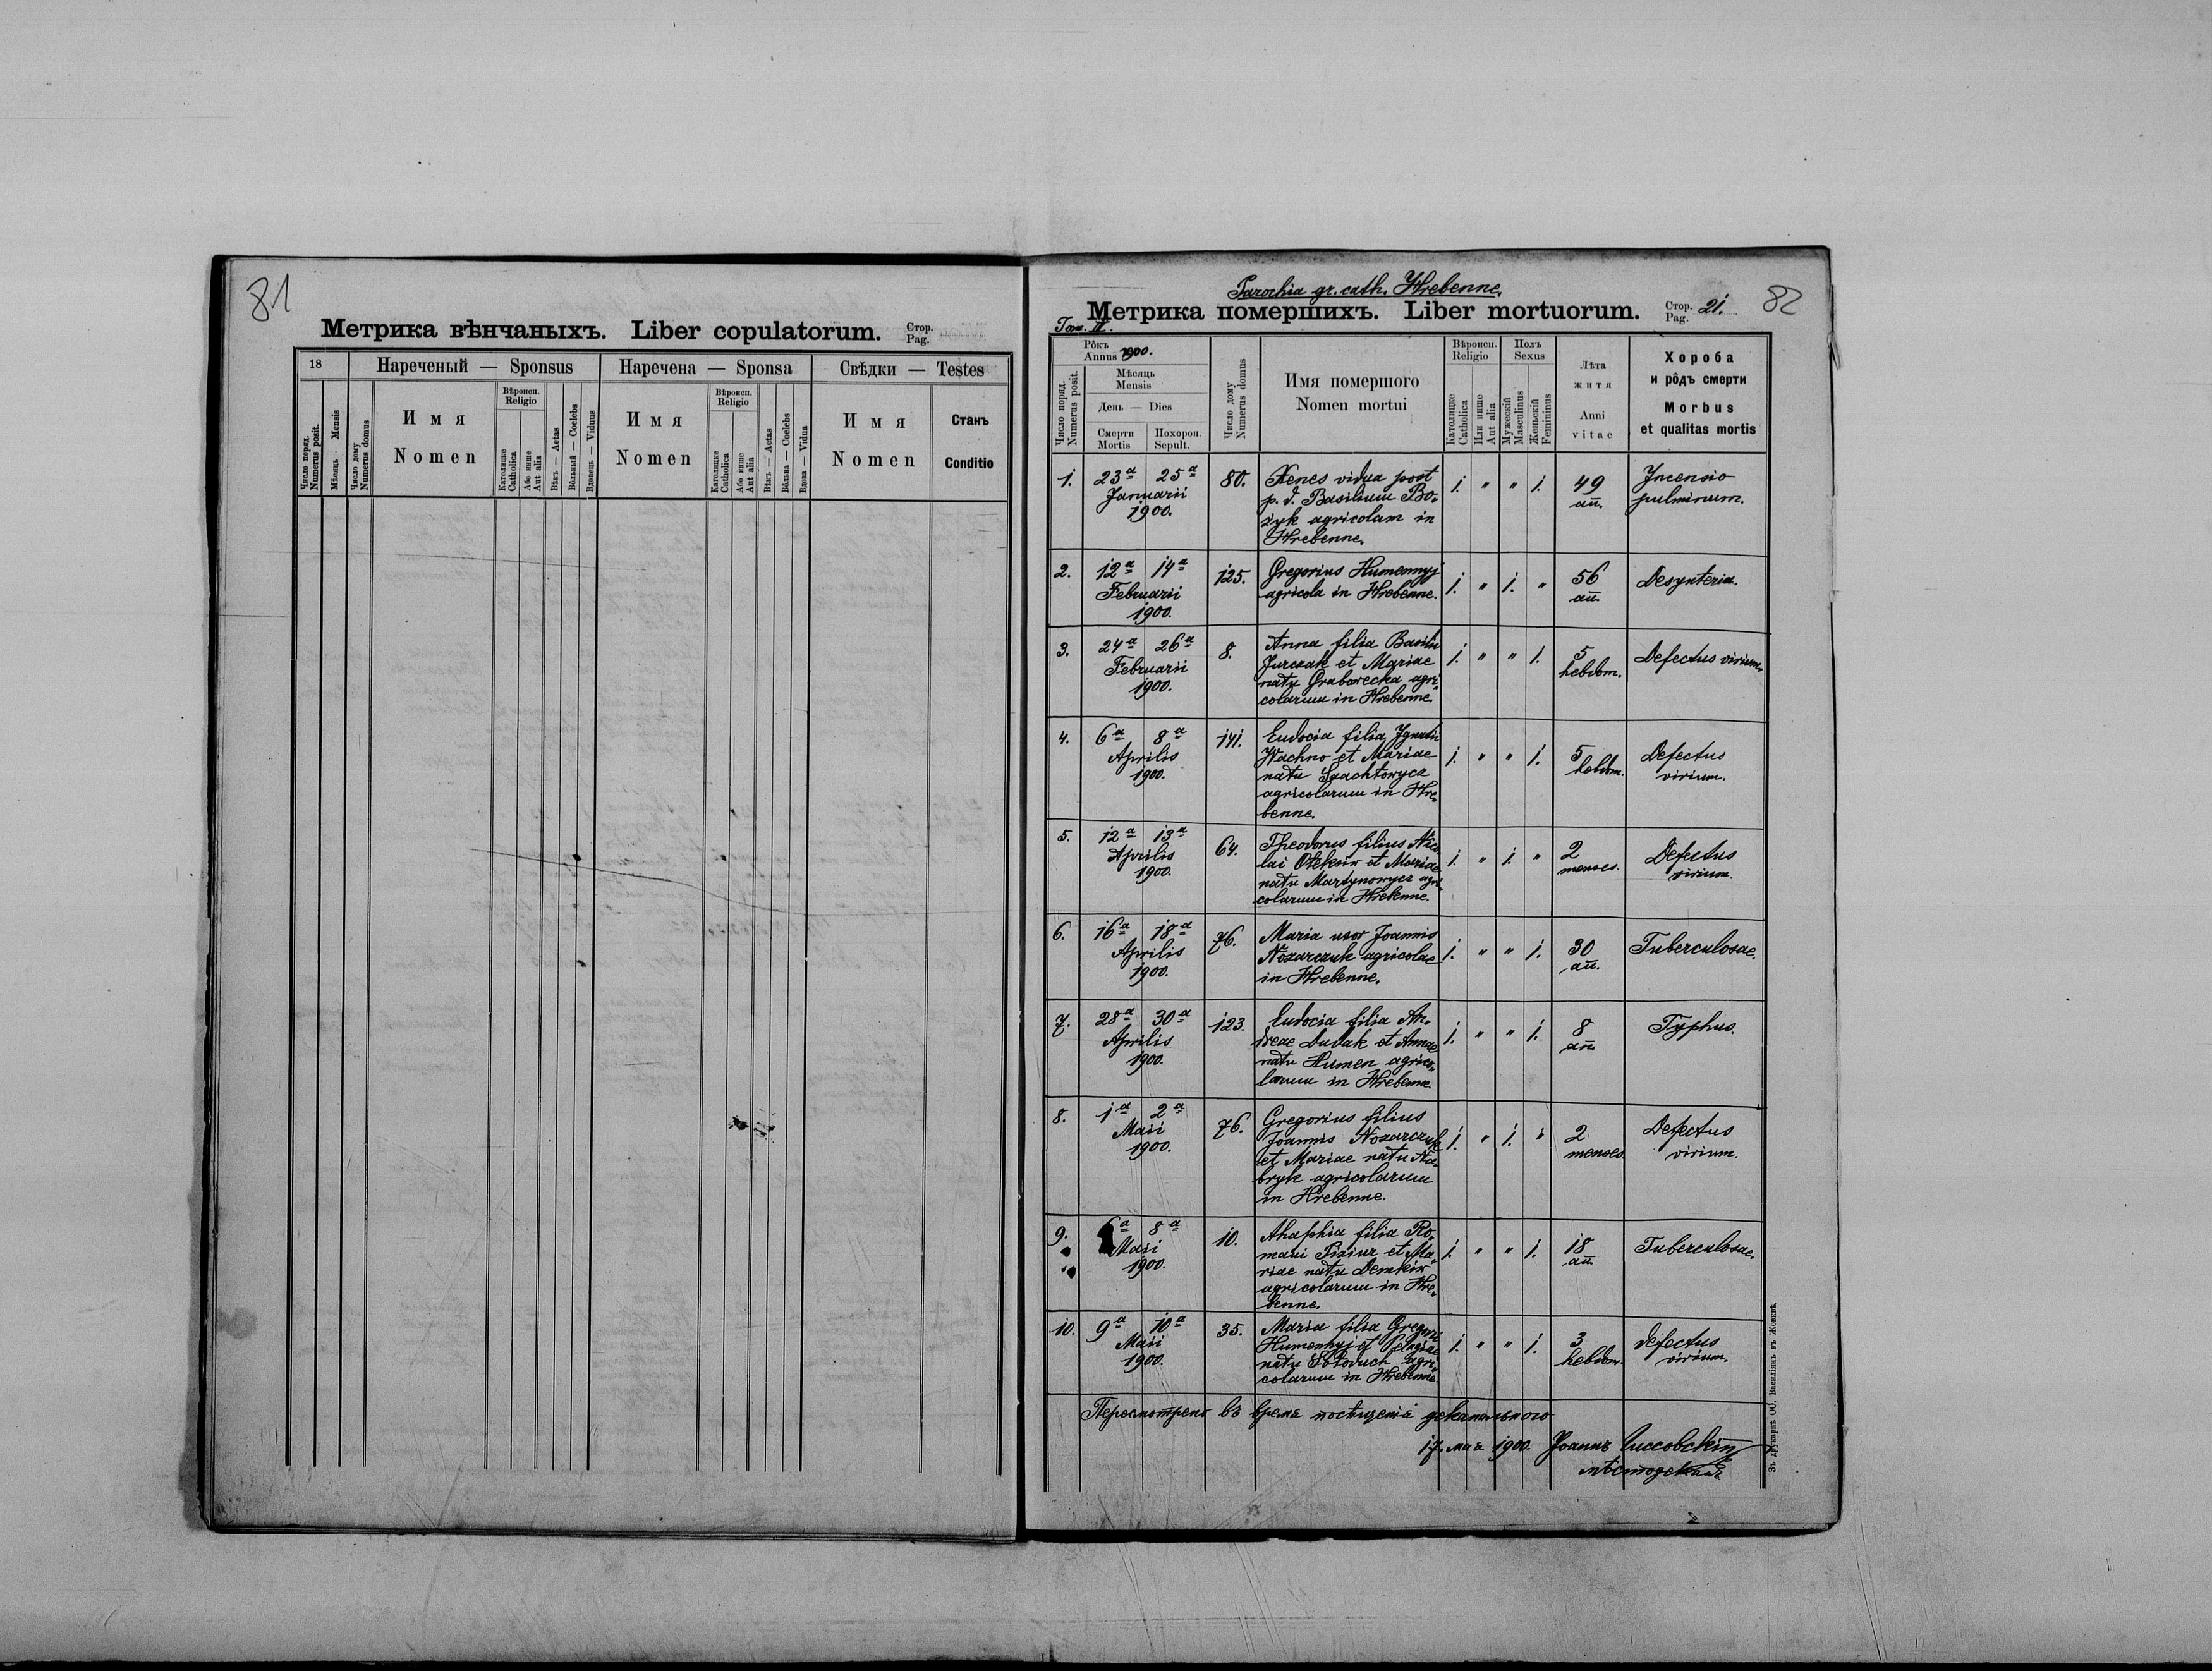 81
Метрика вѣнчаныхъ. Liber copulatorum. Стор. Pag.
18
Нареченый — Sponsus
Наречена — Sponsa
Свѣдки — Testes
Число поряд. Numerus posit.
Мѣсяць - Mensis
Число дому Numerus domus
Имя
Nomen
Вѣроисп. Religio
Католицке Catholica
Або инше Aut alia
Вѣкъ — Aetas
Вôльный — Coelebs
Вдовець — Viduus
Имя
Nomen
Вѣроисп. Religio
Католицке Catholica
Або инше Aut alia
Вѣкъ — Aetas
Вôльна — Coelebs
Вдова — Vidua
Имя
Nomen
Станъ
Conditio
Parochia gr. cath. Hrebenne.
Метрика помершихъ. Liber mortuorum. Стор. Pag. 21.
82
Tom. II.
Рôкъ
Annus 1900.
Мѣсяць
Mensis
День — Dies
Смерти Mortis
Похорон. Sepult.
Число поряд. Numerus posit.
Число дому Numerus domus
Имя помершого
Nomen mortui
Вѣроисп. Religio
Католицке Catholica
Или инше Aut alia
Полъ Sexus
Мужескій Masculinus
Женьскій Femininus
Лѣта
житя
Anni
vitae
Хороба
и рôдъ смерти
Morbus
et qualitas mortis
1. 23a 25a 80. Xenes vidua post 1. " " 1. 49 Incensio
Januarii p. d. Basilium Bo- an. pulminum.
1900. żyk agricolam in
Hrebenne.
2. 12a 14a 125. Gregorius Humennyj 1. " 1. " 56 Desynteria.
Februarii agricola in Hrebenne. an.
1900.
3. 24a 26a 8. Anna filia Basilii 1. " " 1. 5 Defectus virium.
Februarii Jurczak et Mariae hebdom.
1900. natu Grabowecka agri-
colarum in Hrebenne.
4. 6a 8a 141. Eudocia filia Ignatii 1. " " 1. 5 Defectus
Aprilis Wachno et Mariae hebdom. virium.
1900. natu Szachtowycz
agricolarum in Hre-
benne.
5. 12a 13a 64. Theodorus filius Nico- 1. " 1. " 2 Defectus
Aprilis lai Ołeksiw et Mariae menses. virium.
1900. natu Martynowycz agri-
colarum in Hrebenne.
6. 16a 18a 76. Maria uxor Joannis 1. " " 1. 30 Tuberculosae.
Aprilis Nozarczuk agricolae an.
1900. in Hrebenne.
7. 28a 30a 123. Eudocia filia An- 1. " " 1. 8 Typhus.
Aprilis dreae Dudak et Annae an.
1900. natu Humen agrico-
larum in Hrebenne.
8. 1a 2a 76. Gregorius filius 1. " 1. " 2 Defectus
Maii Joannis Nozarczuk menses. virium.
1900. et Mariae natu Na-
bryk agricolarum
in Hrebenne.
9. 6a 8a 10. Ahaphia filia Ro- 1. " " 1. 18 Tuberculosae.
Maii mani Piziur et Ma- an.
1900. riae natu Demkiw
agricolarum in Hre-
benne.
10. 9a 10a 35. Maria filia Gregorii 1. " " 1. 3 Defectus
Maii Humennyj et Pelagiae hebdom. virium.
1900. natu Sołoduch agri-
colarum in Hrebenne.
Пересмотрено въ время посѣщенія деканального
17. мая 1900 Іоаннъ
Зъ друкарнѣ ОО. Василіянъ въ Жовквѣ.